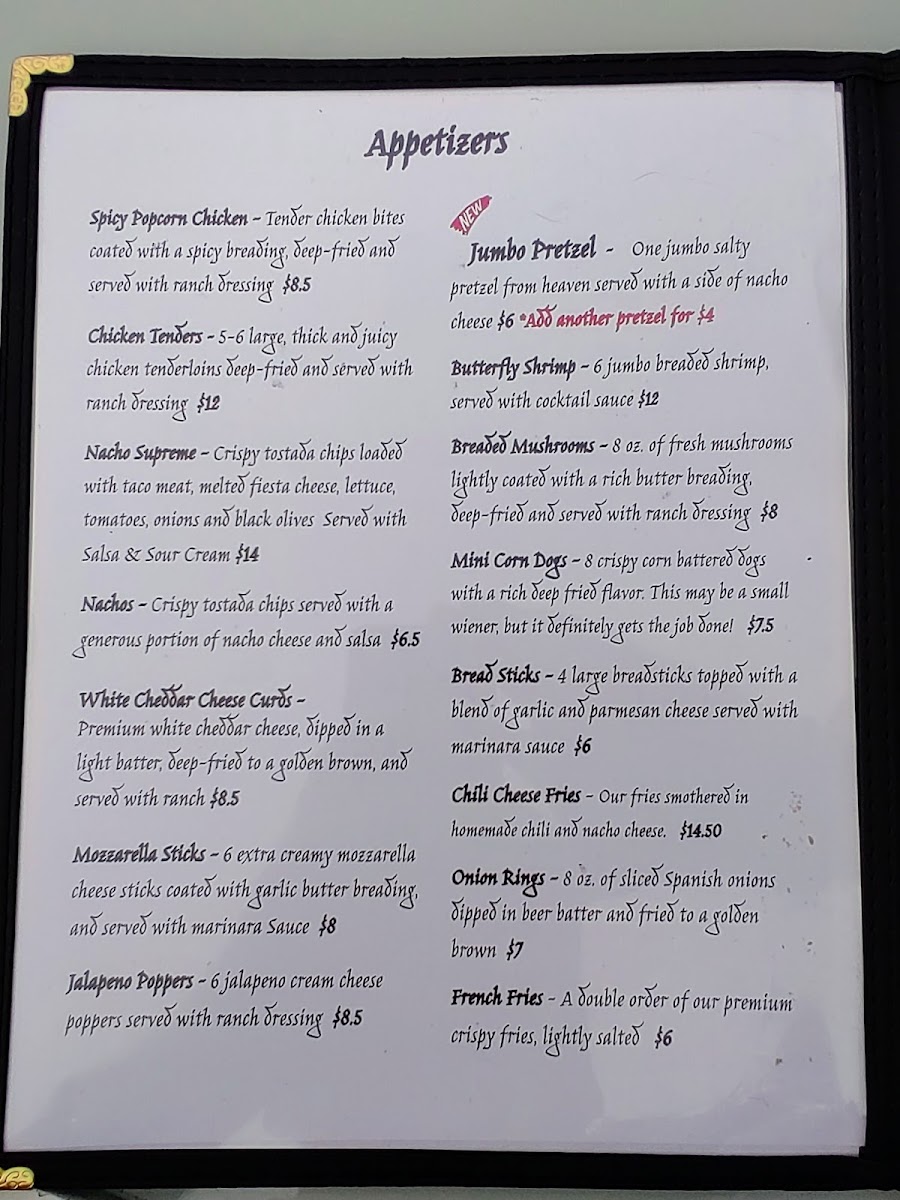 Appetizers
Spicy Popcorn Chicken - Tender chicken bites
coated with a spicy breading, deep-fried and
served with ranch dressing $8.5
Chicken Tenders - 5-6 large, thick and juicy
chicken tenderloins deep-fried and served with
ranch dressing $12
Nacho Supreme - Crispy tostada chips loaded
with taco meat, melted fiesta cheese, lettuce,
tomatoes, onions and black olives Served with
Salsa & Sour Cream $14
Nachos - Crispy tostada chips served with a
generous portion of nacho cheese and salsa $6.5
White Cheddar Cheese Curds -
Premium white cheddar cheese, dipped in a
light batter, deep-fried to a golden brown, and
served with ranch $8.5
Mozzarella Sticks - 6 extra creamy mozzarella
cheese sticks coated with garlic butter breading,
and served with marinara Sauce $8
Jalapeno Poppers - 6 jalapeno cream cheese
poppers served with ranch dressing $8.5
NEW
Jumbo Pretzel - One jumbo salty
pretzel from heaven served with a side of nacho
cheese $6 *Add another pretzel for $4
Butterfly Shrimp - 6 jumbo breaded shrimp,
served with cocktail sauce $12
Breaded Mushrooms - 8 oz. of fresh mushrooms
lightly coated with a rich butter breading,
deep-fried and served with ranch dressing $8
Mini Corn Dogs - 8 crispy corn battered dogs
with a rich deep fried flavor. This may be a small
wiener, but it definitely gets the job done! $7.5
Bread Sticks - 4 large breadsticks topped with a
blend of garlic and parmesan cheese served with
marinara sauce $6
Chili Cheese Fries - Our fries smothered in
homemade chili and nacho cheese. $14.50
Onion Rings - 8 oz. of sliced Spanish onions
dipped in beer batter and fried to a golden
brown $7
French Fries - A double order of our premium
crispy fries, lightly salted $6